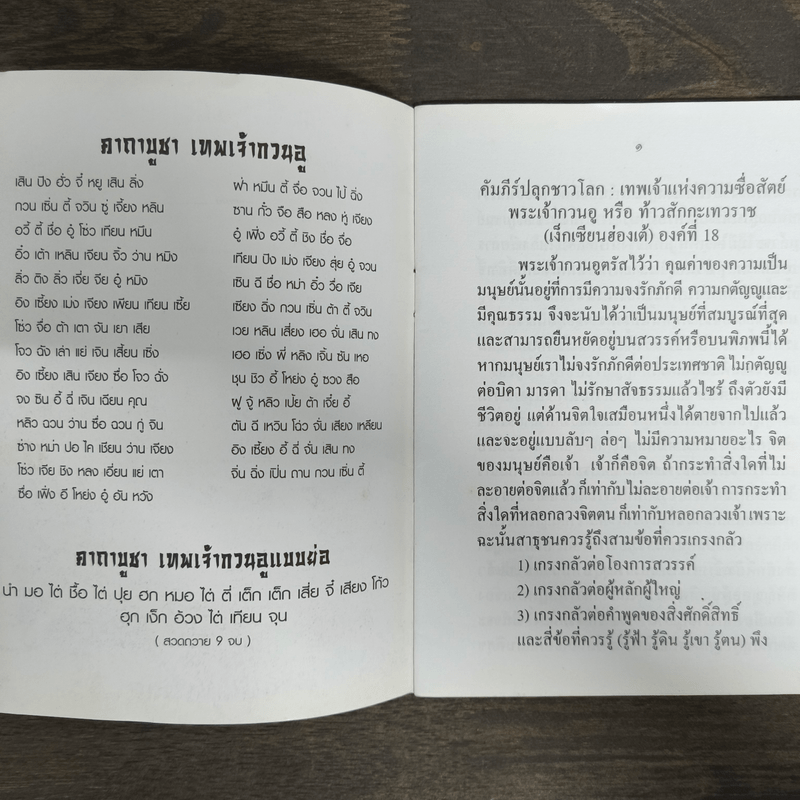 คาถาบูชา เทพเจ้ากวนอู
เสิน ปิง ฮั่ว จี่ หยู เสิน ลิ่ง
กวน เซิ่น ตี้ จวิน ซู่ เจี้ยง หลิน
อวี้ ตี้ ชื่อ อู๋ โซ่ว เทียน หมึน
อิ๋ว เต้า เหลิน เจียน จิ้ว ว่าน หมิง
ลิ่ว ติง ลิ่ว เจี่ย จีย อู๋ หมิง
อิง เซี้ยง เม่ง เจียง เพียน เทียน เซี้ย
โซ่ว จื่อ ต้า เตา จั่น เยา เสีย
โจว ฉัง เล่า แย่ เจิน เลี้ยน เซิ่ง
อิง เซี้ยง เสิน เจียง ชื่อ โจว ฉั่ง
จง ซิน อี้ จี่ เจิน เฉียน คุณ
หลิว ฉวน ว่าน ซื่อ ฉวน กู่ จิน
ซ่าง หม่า ปอ ไค เชียน ว่าน เจียง
โซ่ว เจีย ชิง หลง เอี่ยน แย่ เตา
ชื่อ เฟิ่ง อี โหย่ง อู๋ ฮัน หวัง
ฝ่า หมึน ตี้ จื่อ จวน ไป้ ฉิ่ง
ซาน กั่ว จือ สือ หลง หู่ เจียง
อู๋ เฟิ่ง อวี้ ตี้ ชิง ชื่อ จื่อ
เทียน ปิง เม่ง เจียง สุ่ย อู๋ จวน
เซิน ฉี ชื่อ หม่า อิ๋ว วื่อ เจีย
เซียง ฉิ่ง กวน เซิ่น ต้า ตี้ จวิน
เวย หลิน เสี่ยง เฮอ จั่น เสิน ทง
เฮอ เซิ่ง พี่ หลิง เจิ้น ซัน เหอ
ชุน ชิว อี้ โหย่ง อู๋ ซวง สือ
ฝู จู๋ หลิว เปย้ ต้า เจี่ย อี้
ตัน ฉี เหวิน โฉ่ว จั่น เสียง เหลียน
อิง เซี้ยง อี้ ฉี่ จั่น เสิน ทง
จิ่น ฉิ่ง เปิ่น ถาน กวน เซิ่น ตี้
คาถาบูชา เทพเจ้ากวนอูแบบย่อ
นำ มอ ไต่ ซื้อ ไต่ ปุย ฮก หมอ ไต่ ตี่ เต็ก เต็ก เสี่ย จี๋ เสียง โก้ว
ฮุก เง็ก อ้วง ไต่ เทียน จุน
( สวดถวาย 9 จบ )
๑
คัมภีร์ปลุกชาวโลก : เทพเจ้าแห่งความซื่อสัตย์
พระเจ้ากวนอู หรือ ท้าวสักกะเทวราช
(เง็กเซียนฮ่องเต้) องค์ที่ 18
พระเจ้ากวนอูตรัสไว้ว่า คุณค่าของความเป็น
มนุษย์นั้นอยู่ที่การมีความจงรักภักดี ความกตัญญูและ
มีคุณธรรม จึงจะนับได้ว่าเป็นมนุษย์ที่สมบูรณ์ที่สุด
และสามารถยืนหยัดอยู่บนสวรรค์หรือบนพิภพนี้ได้
หากมนุษย์เราไม่จงรักภักดีต่อประเทศชาติ ไม่กตัญญู
ต่อบิดา มารดา ไม่รักษาสัจธรรมแล้วไซร้ ถึงตัวยังมี
ชีวิตอยู่ แต่ด้านจิตใจเสมือนหนึ่งได้ตายจากไปแล้ว
และจะอยู่แบบลับๆ ล่อๆ ไม่มีความหมายอะไร จิต
ของมนุษย์คือเจ้า เจ้าก็คือจิต ถ้ากระทำสิ่งใดที่ไม่
ละอายต่อจิตแล้ว ก็เท่ากับไม่ละอายต่อเจ้า การกระทำ
สิ่งใดที่หลอกลวงจิตตน ก็เท่ากับหลอกลวงเจ้า เพราะ
ฉะนั้นสาธุชนควรรู้ถึงสามข้อที่ควรเกรงกลัว
1) เกรงกลัวต่อโองการสวรรค์
2) เกรงกลัวต่อผู้หลักผู้ใหญ่
3) เกรงกลัวต่อคำพูดของสิ่งศักดิ์สิทธิ์
และสี่ข้อที่ควรรู้ (รู้ฟ้า รู้ดิน รู้เขา รู้ตน) พึง